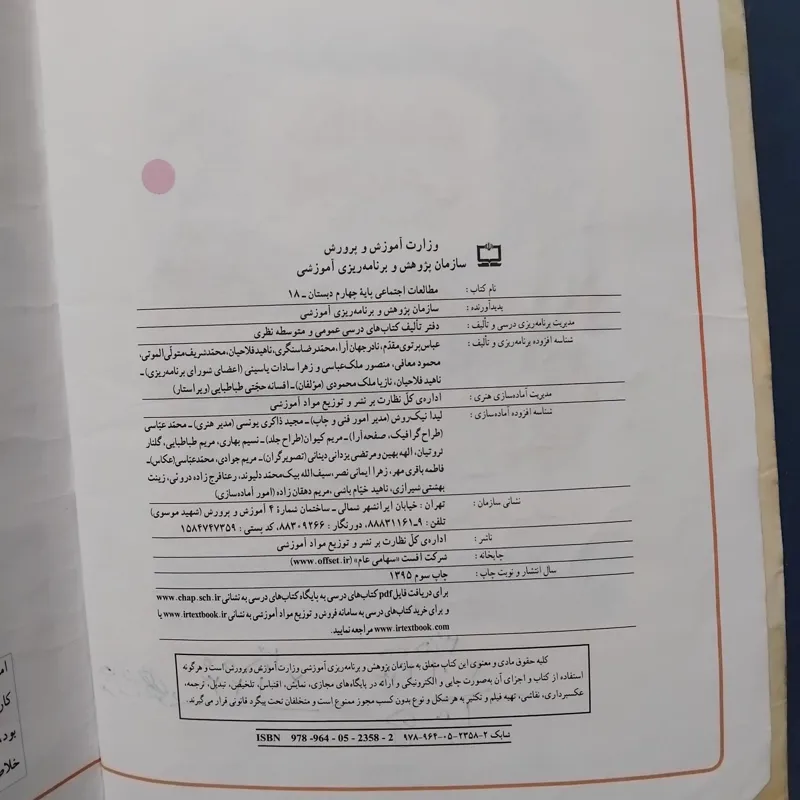 وزارت آموزش و پرورش
سازمان پژوهش و برنامه‌ریزی آموزشی
نام کتاب : مطالعات اجتماعی پایهٔ چهارم دبستان ـ ۱۸
پدیدآورنده : سازمان پژوهش و برنامه‌ریزی آموزشی
مدیریت برنامه‌ریزی درسی و تألیف : دفتر تألیف کتاب‌های درسی عمومی و متوسطه نظری
شناسه افزوده برنامه‌ریزی و تألیف : عباس پرتوی‌مقدّم، نادر جهان‌آرا، محمدرضا سنگری، ناهید فلاحیان، محمدشریف متولّی الموتی،
محمود معافی، منصور ملک‌عباسی و زهرا سادات یاسینی (اعضای شورای برنامه‌ریزی) ـ
ناهید فلاحیان، نازیا ملک محمودی (مؤلفان) ـ افسانه حجّتی طباطبایی (ویراستار)
مدیریت آماده‌سازی هنری : اداره‌ی کلّ نظارت بر نشر و توزیع مواد آموزشی
شناسه افزوده آماده‌سازی : لیدا نیک‌روش (مدیر امور فنی و چاپ) ـ مجید ذاکری یونسی (مدیر هنری) ـ محمّد عبّاسی
(طراح گرافیک، صفحه‌آرا) ـ مریم کیوان (طراح جلد) ـ نسیم بهاری، مریم طباطبایی، گلنار
ثروتیان، الهه بهین و مرتضی یزدانی دینانی (تصویرگران) ـ مریم جوادی، محمّدعبّاسی (عکاس) ـ
فاطمه باقری مهر، زهرا ایمانی نصر، سیف‌الله بیک‌محمّد دلیوند، رعنا فرج زاده دروئی، زینت
بهشتی شیرازی، ناهید خیّام باشی، مریم دهقان زاده (امور آماده‌سازی)
نشانی سازمان : تهران : خیابان ایرانشهر شمالی ـ ساختمان شمارهٔ ۴ آموزش و پرورش (شهید موسوی)
تلفن : ۹ـ۸۸۸۳۱۱۶۱، دورنگار : ۸۸۳۰۹۲۶۶، کد پستی : ۱۵۸۴۷۴۷۳۵۹
ناشر : اداره‌ی کلّ نظارت بر نشر و توزیع مواد آموزشی
چاپخانه : شرکت افست «سهامی عام» (www.offset.ir)
سال انتشار و نوبت چاپ : چاپ سوم ۱۳۹۵
برای دریافت فایل pdf کتاب‌های درسی به پایگاه کتاب‌های درسی به نشانی www.chap.sch.ir
و برای خرید کتاب‌های درسی به سامانه فروش و توزیع مواد آموزشی به نشانی www.irtextbook.ir یا
www.irtextbook.com مراجعه نمایید.
کلیه حقوق مادی و معنوی این کتاب متعلق به سازمان پژوهش و برنامه‌ریزی آموزشی وزارت آموزش و پرورش است و هرگونه
استفاده از کتاب و اجزای آن به‌صورت چاپی و الکترونیکی و ارائه در پایگاه‌های مجازی، نمایش، اقتباس، تلخیص، تبدیل، ترجمه،
عکسبرداری، نقاشی، تهیه فیلم و تکثیر به هر شکل و نوع بدون کسب مجوز ممنوع است و متخلفان تحت پیگرد قانونی قرار می‌گیرند.
شابک ۲-۲۳۵۸-۰۵-۹۶۴-۹۷۸ ISBN 978 -964 - 05 - 2358 - 2